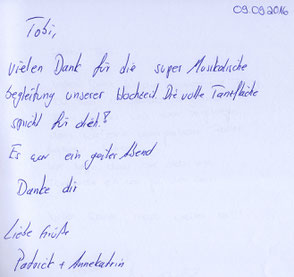 09.09.2016
Tobi,
vielen Dank für die super Musikalische
begleitung unserer Hochzeit Die volle Tanzfläche
spricht für dich!
Es war ein geiler Abend
Danke dir
Liebe Grüße
Patrick + Annekatrin